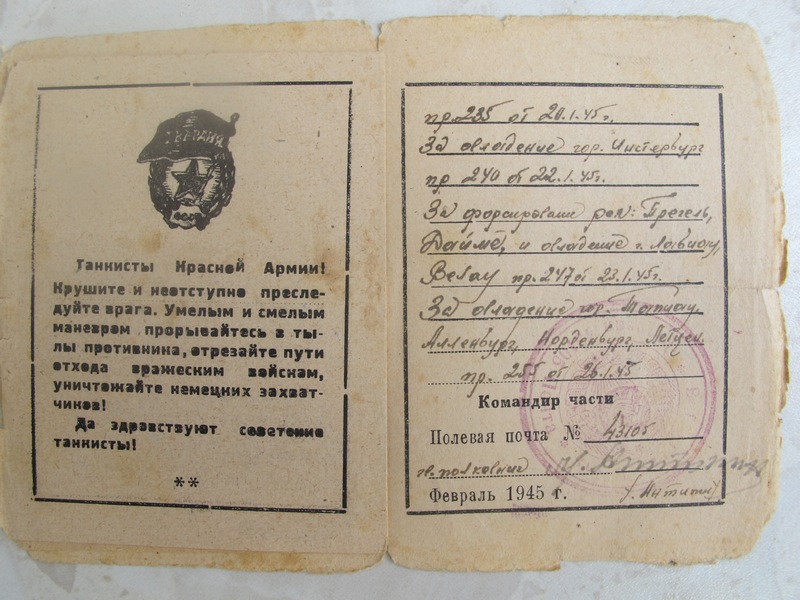 ГВАРДИЯ
Танкисты Красной Армии!
Крушите и неотступно пресле-
дуйте врага. Умелым и смелым
маневром прорывайтесь в ты-
лы противника, отрезайте пути
отхода вражеским войскам,
уничтожайте немецких захват-
чиков!
Да здравствуют советские
танкисты!
**
пр. 235 от 20.1.45г.
За овладение гор. Инстербург
пр 240 от 22.1.45г.
За форсирование рек: Прегель,
Дайме, и овладение г. Лабиау,
Велау пр. 247 от 23.1.45г.
За овладение гор. Тапиау,
Алленбург, Норденбург, Летцен.
пр. 255 от 26.1.45
Командир части
Полевая почта № 43105
гв. полковник
Февраль 1945 г. /. Антипин/